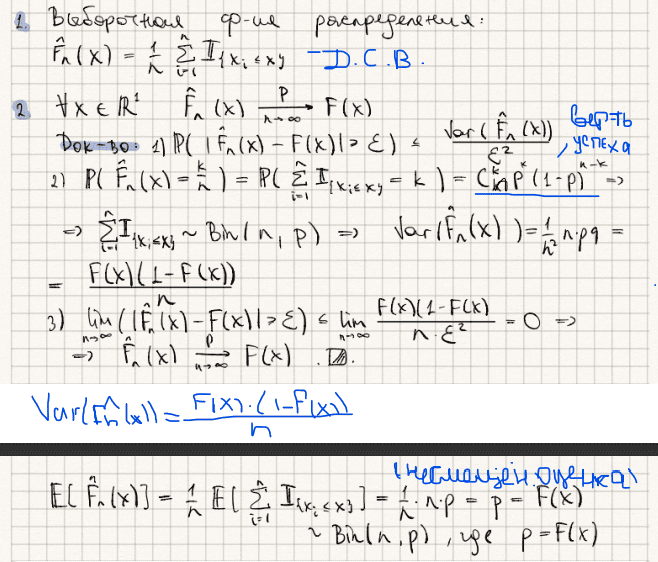 1. Выборочная ф-ия распределения:
F̂ₙ(x) = 1/n Σᵢ₌₁ⁿ I{xᵢ ≤ x} - Д.С.В.
2. ∀x ∈ ℝ¹ F̂ₙ(x) →ᴾ n→∞ F(x)
Док-во: 1) P(|F̂ₙ(x) - F(x)| > ε) ≤ Var(F̂ₙ(x))/ε² вер-ть успеха
2) P(F̂ₙ(x) = k/n) = P(Σᵢ₌₁ⁿ I{xᵢ ≤ x} = k) = Cₙᵏ pᵏ (1-p)ⁿ⁻ᵏ ⇒
⇒ Σᵢ₌₁ⁿ I{xᵢ ≤ x} ~ Bin(n, p) ⇒ Var(F̂ₙ(x)) = 1/n² n·pq =
= F(x)(1-F(x))/n
3) lim n→∞ (|F̂ₙ(x) - F(x)| > ε) ≤ lim n→∞ F(x)(1-F(x)/n·ε² = 0 ⇒
⇒ F̂ₙ(x) →ᴾ n→∞ F(x).
Var(F̂ₙ(x)) = F(x)·(1-F(x))/n
(несмещён. оценка)
E[F̂ₙ(x)] = 1/n E[Σᵢ₌₁ⁿ I{xᵢ ≤ x}] = 1/n · n·p = p = F(x)
~ Bin(n, p), где p = F(x)